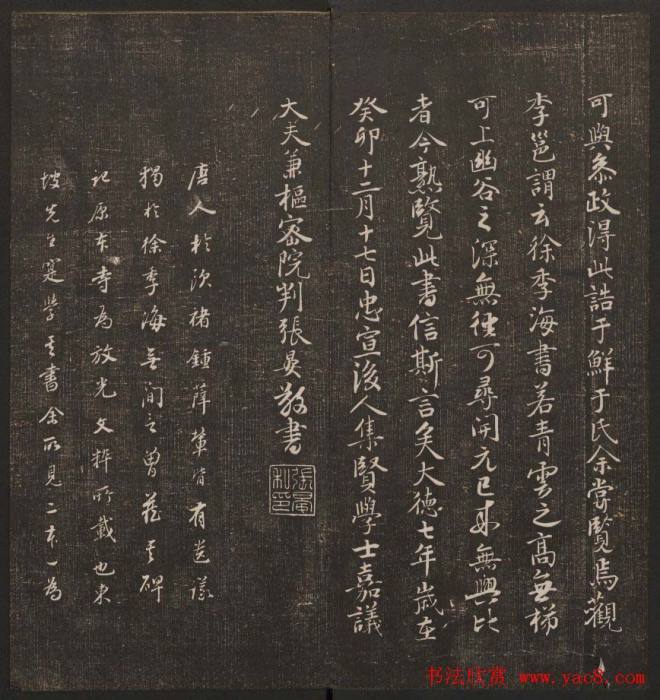 可與參政得此誥于鮮于氏余嘗覽焉觀
李邕謂云徐季海書若青雲之高無梯
可上幽谷之深無徑可尋開元已來無與比
者今熟覽此書信斯言矣大德七年歲在
癸卯十二月十七日忠宣後人集賢學士嘉議
大夫兼樞密院判張晏敬書
張晏私印
唐人於欧褚鍾薛輩皆有遺議
獨於徐季海無間言曾藏其碑
記原本寺為放光文粹所載也東
坡先生寔學其書余所見二本一為
书法欣赏 www.yac8.com